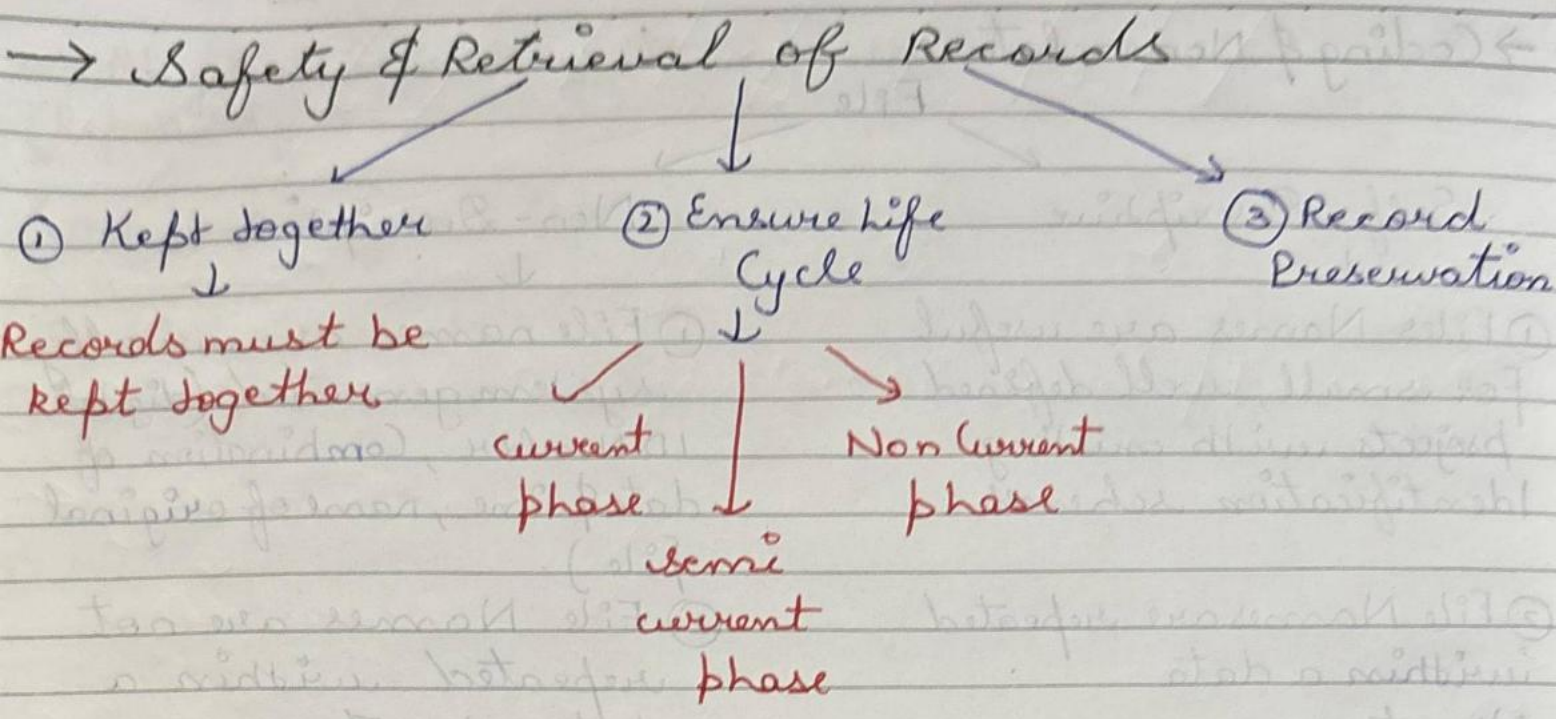 → Safety & Retrieval of Records
① Kept together
↓
Records must be
kept together
② Ensure Life
Cycle
↓
current
phase
semi
current
phase
Non Current
phase
③ Record
Preservation